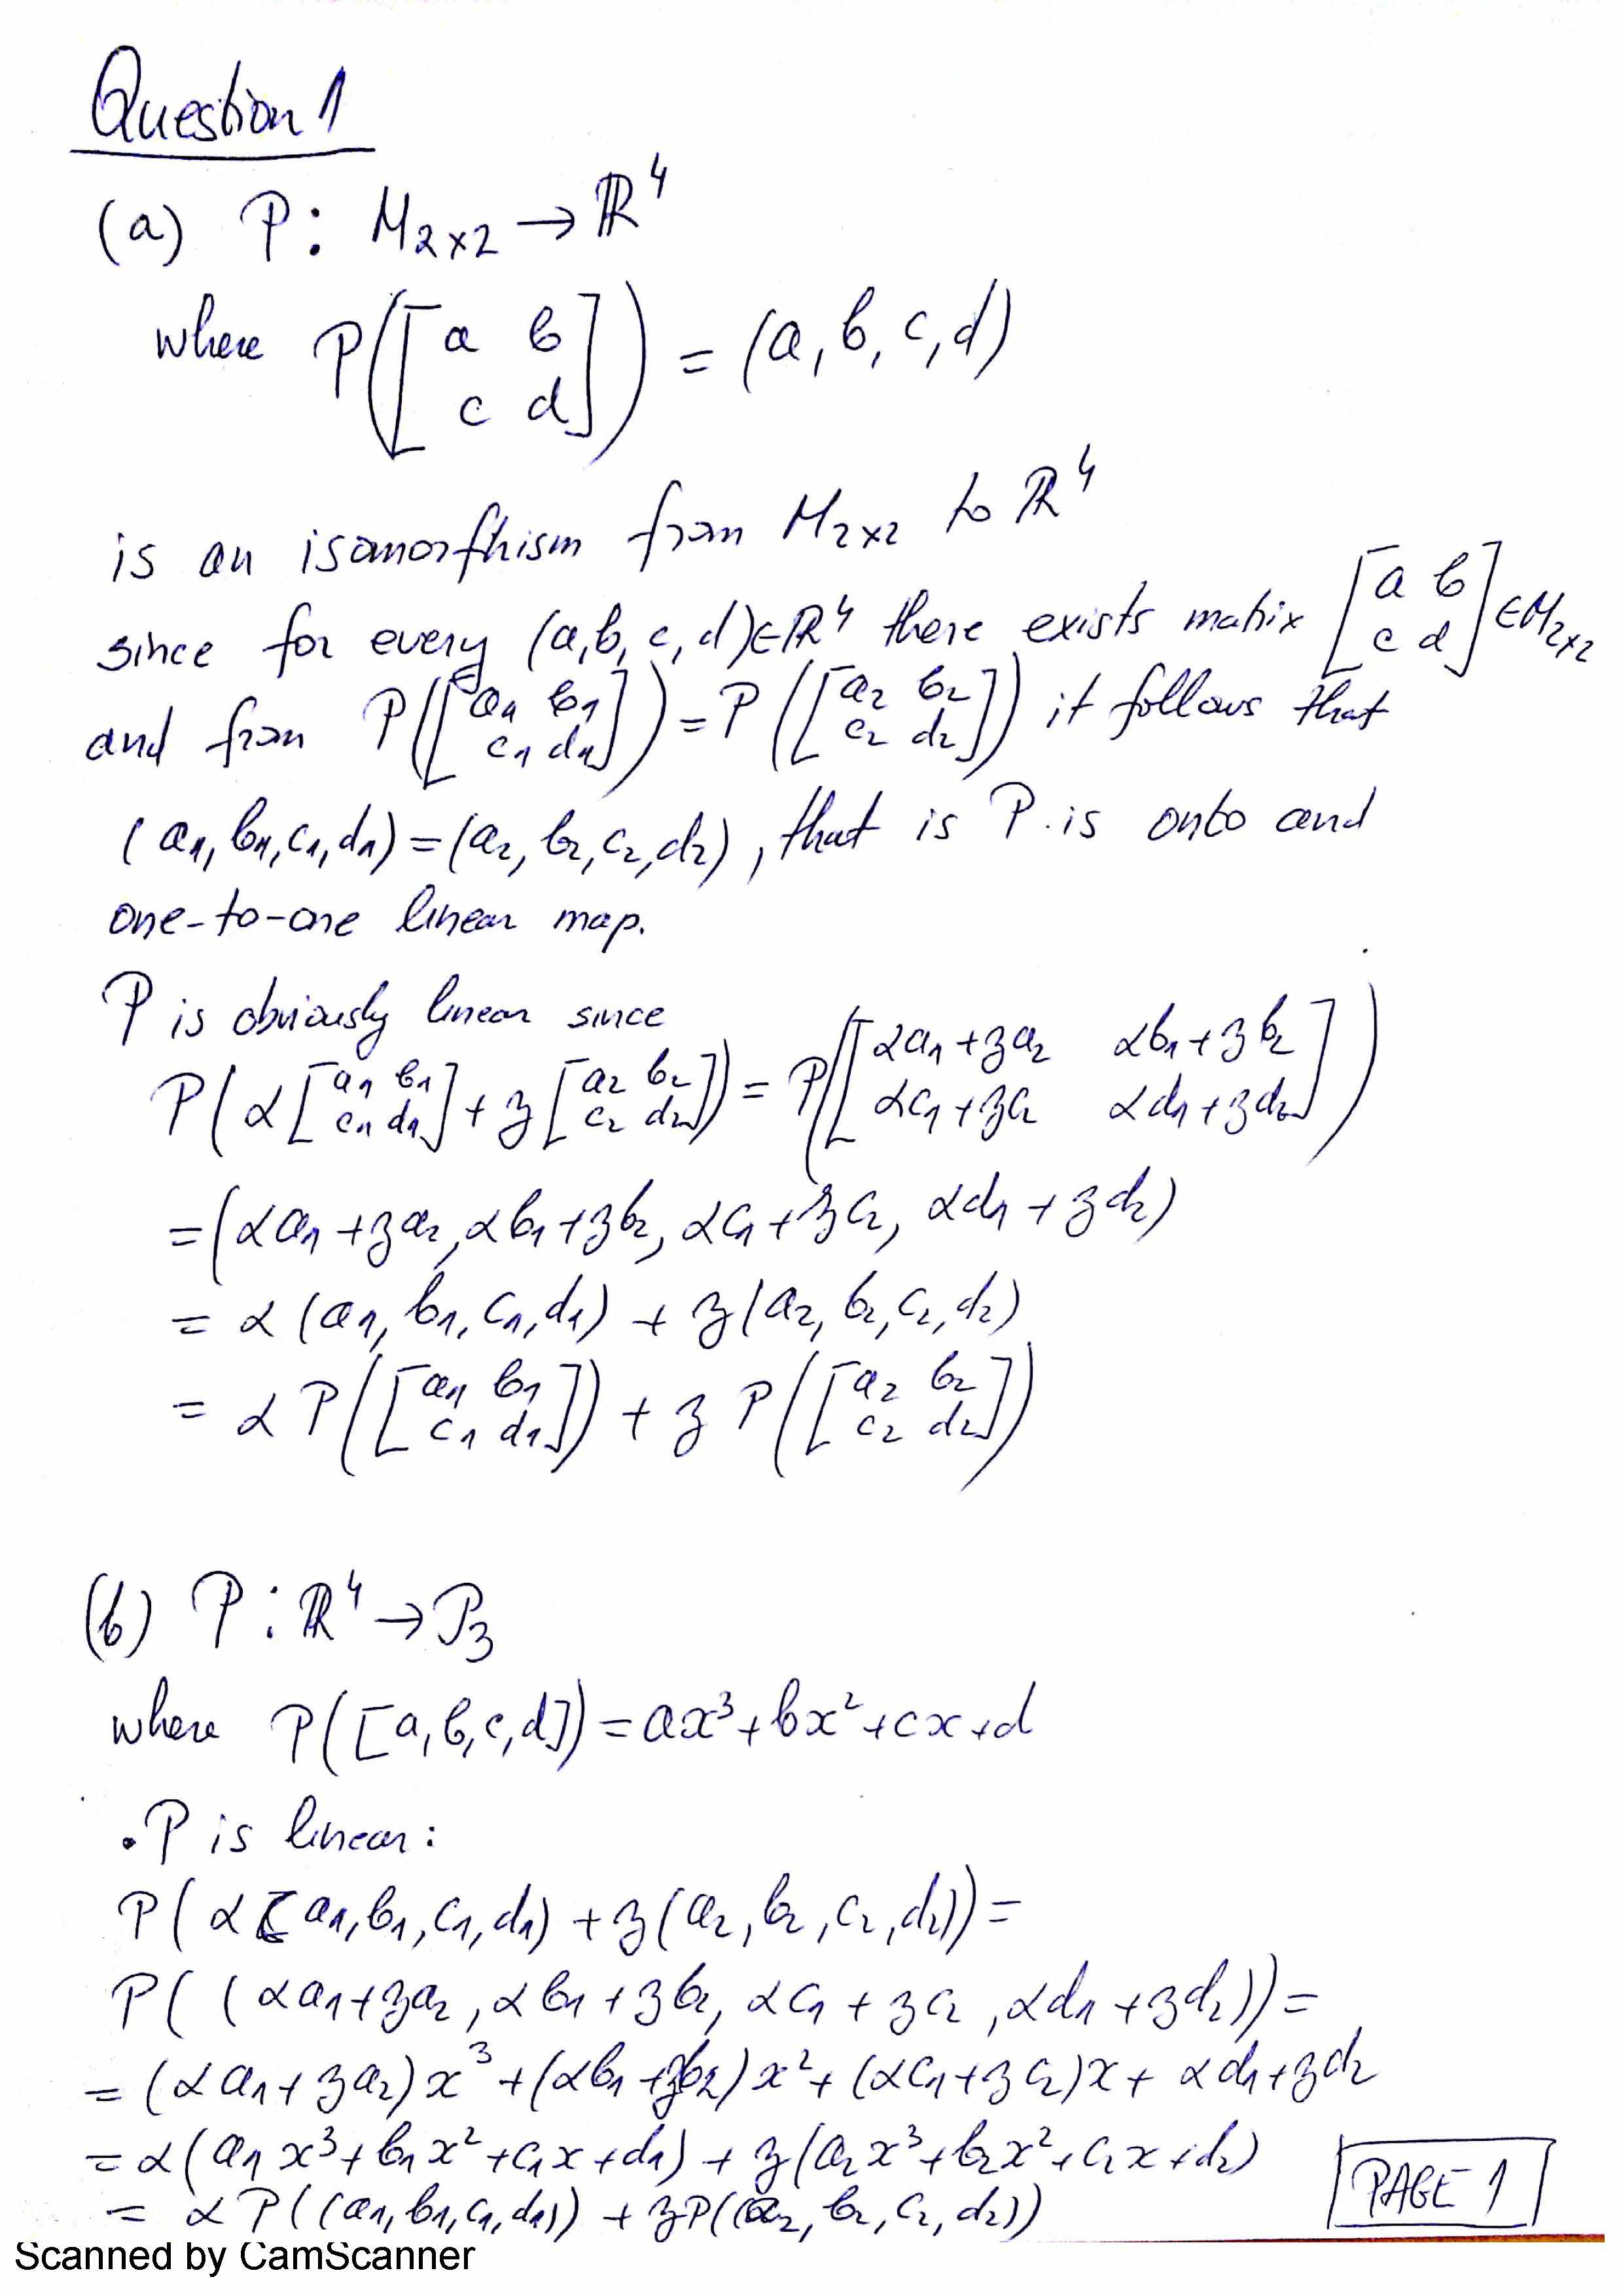 Question 1
(a) P : M₂ₓ₂ → ℝ⁴
where P([a b; c d]) = (a, b, c, d)
is an isomorfhism from M₂ₓ₂ to ℝ⁴
since for every (a,b,c,d)∈ℝ⁴ there exists matrix [a b; c d] ∈M₂ₓ₂
and from P([a₁ b₁; c₁ d₁]) = P([a₂ b₂; c₂ d₂]) it follows that
(a₁, b₁, c₁, d₁) = (a₂, b₂, c₂, d₂), that is P is onto and
one-to-one linear map.
P is obviously linear since
P(α[a₁ b₁; c₁ d₁] + z[a₂ b₂; c₂ d₂]) = P([αa₁+za₂ αb₁+zb₂; αc₁+zc₂ αd₁+zd₂])
= (αa₁+za₂, αb₁+zb₂, αc₁+zc₂, αd₁+zd₂)
= α(a₁, b₁, c₁, d₁) + z(a₂, b₂, c₂, d₂)
= αP([a₁ b₁; c₁ d₁]) + zP([a₂ b₂; c₂ d₂])
(b) P : ℝ⁴ → P₃
where P([a, b, c, d]) = ax³ + bx² + cx + d
• P is linear:
P(α(a₁, b₁, c₁, d₁) + z(a₂, b₂, c₂, d₂)) =
P((αa₁+za₂, αb₁+zb₂, αc₁+zc₂, αd₁+zd₂)) =
= (αa₁+za₂)x³ + (αb₁+zb₂)x² + (αc₁+zc₂)x + αd₁+zd₂
= α(a₁x³+b₁x²+c₁x+d₁) + z(a₂x³+b₂x²+c₂x+d₂)
= αP((a₁, b₁, c₁, d₁)) + zP((a₂, b₂, c₂, d₂))
PAGE 1
Scanned by CamScanner